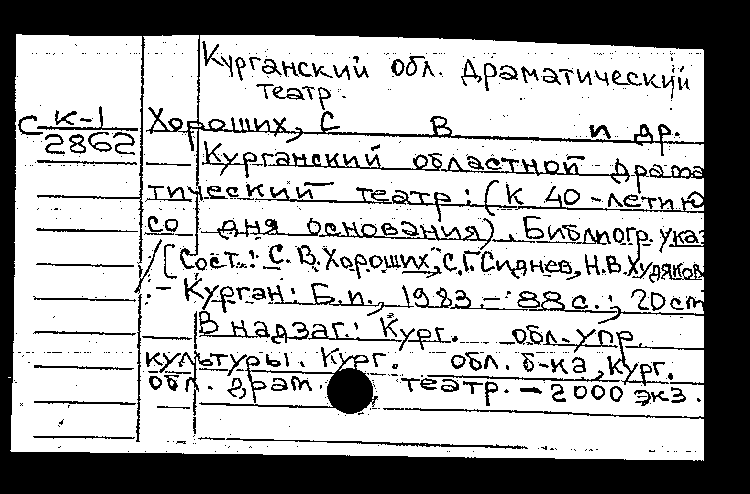 Курганский обл. драматический
театр.
С К-1 Хороших, С В и др.
2862
Курганский областной драма
тический театр: (К 40-летию
со дня основания). Библиогр. указ
/[Сост.: С.В.Хороших, С.Г.Сиднев, Н.В.Худяков
.- Курган: Б.и., 1983.- 88с.; 20см
В надзаг.: Кург. обл. упр.
культуры. Кург. обл. б-ка, Кург.
обл. драм. театр. - 2000 экз.